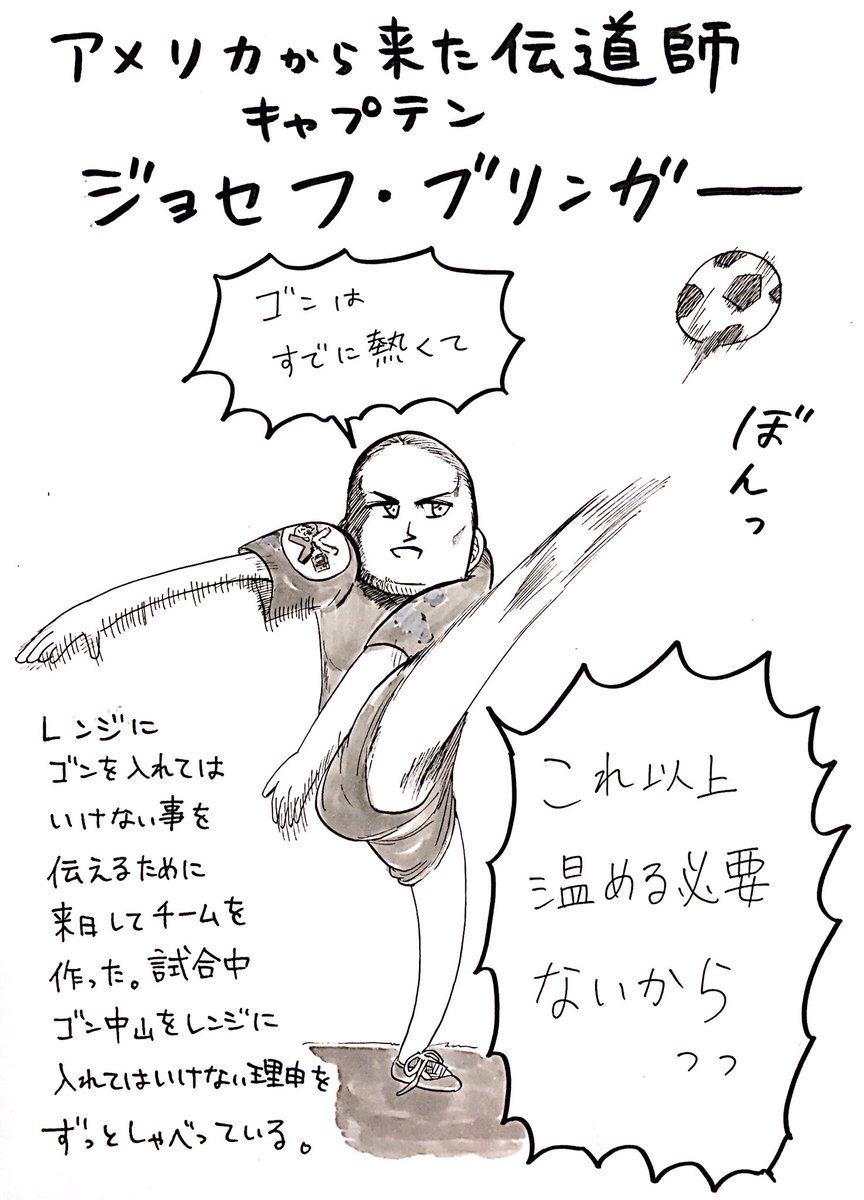 アメリカから来た伝道師
キャプテン
ジョセフ・ブリンガー
ゴンは
すでに熱くて
ぼんっ
これ以上
温める必要
ないから
っっ
レンジに
ゴンを入れては
いけない事を
伝えるために
来日してチームを
作った。試合中
ゴン中山をレンジに
入れてはいけない理由を
ずっとしゃべっている。